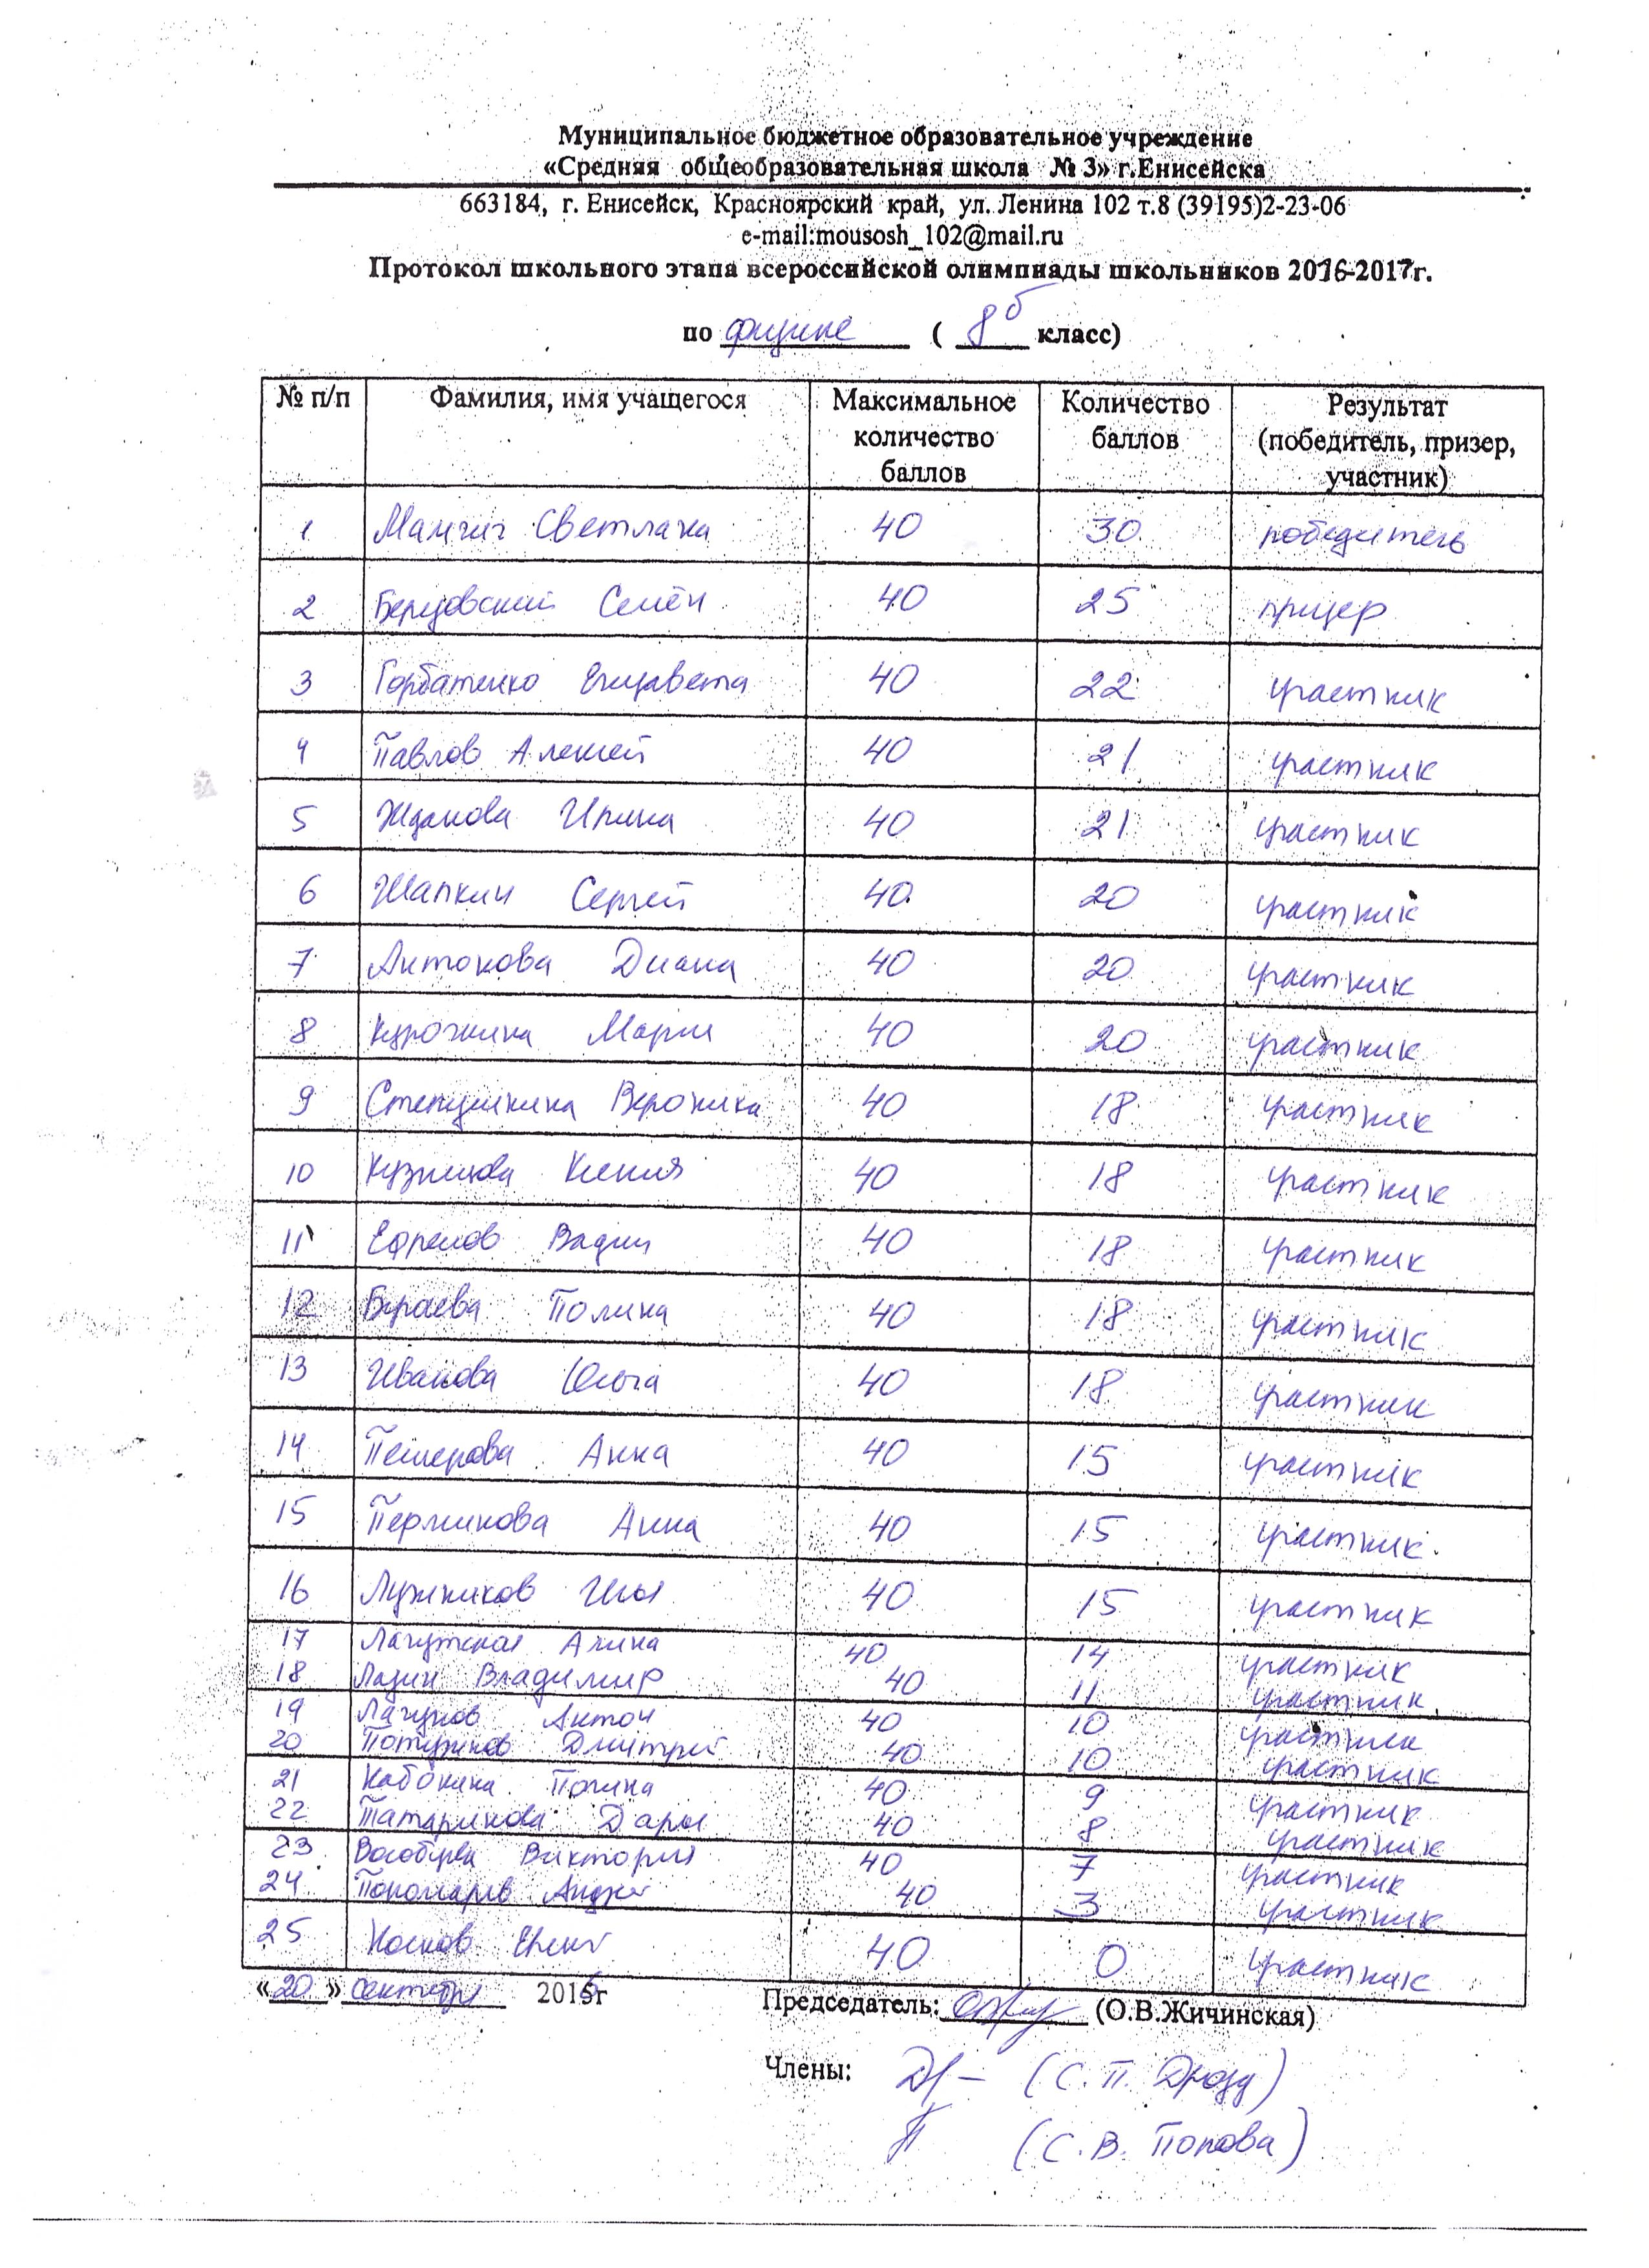 Муниципальное бюджетное образовательное учреждение
«Средняя общеобразовательная школа № 3» г.Енисейска
663184, г. Енисейск, Красноярский край, ул. Ленина 102 т.8 (39195)2-23-06
e-mail:mousosh_102@mail.ru
Протокол школьного этапа всероссийской олимпиады школьников 2016-2017г.
по физике ( 8б класс)
№ п/п Фамилия, имя учащегося Максимальное количество баллов Количество баллов Результат (победитель, призер, участник)
1 Светлана 40 30 победитель
2 Семён 40 25 призер
3 Горбатенко Елизавета 40 22 участник
4 Павлов Алексей 40 21 участник
5 Жданова Ирина 40 21 участник
6 Шапкин Сергей 40 20 участник
7 Антонова Диана 40 20 участник
8 Курочкина Мария 40 20 участник
9 Степушкина Вероника 40 18 участник
10 Кузнецова Ксения 40 18 участник
11 Ефремов Вадим 40 18 участник
12 Полина 40 18 участник
13 Иванова Ольга 40 18 участник
14 Анна 40 15 участник
15 Пермикова Анна 40 15 участник
16 Лужников Илья 40 15 участник
17 Алина 40 14 участник
18 Лазин Владимир 40 11 участник
19 Лагунов Антон 40 10 участник
20 Дмитрий 40 10 участник
21 Полина 40 9 участник
22 Татаринова Дарья 40 8 участник
23 Виктория 40 7 участник
24 Пономарев Андрей 40 3 участник
25 Носков 40 0 участник
«20» сентября 2016г
Председатель: (О.В.Жичинская)
Члены: (С. П. Дрозд)
(С. В. Попова)